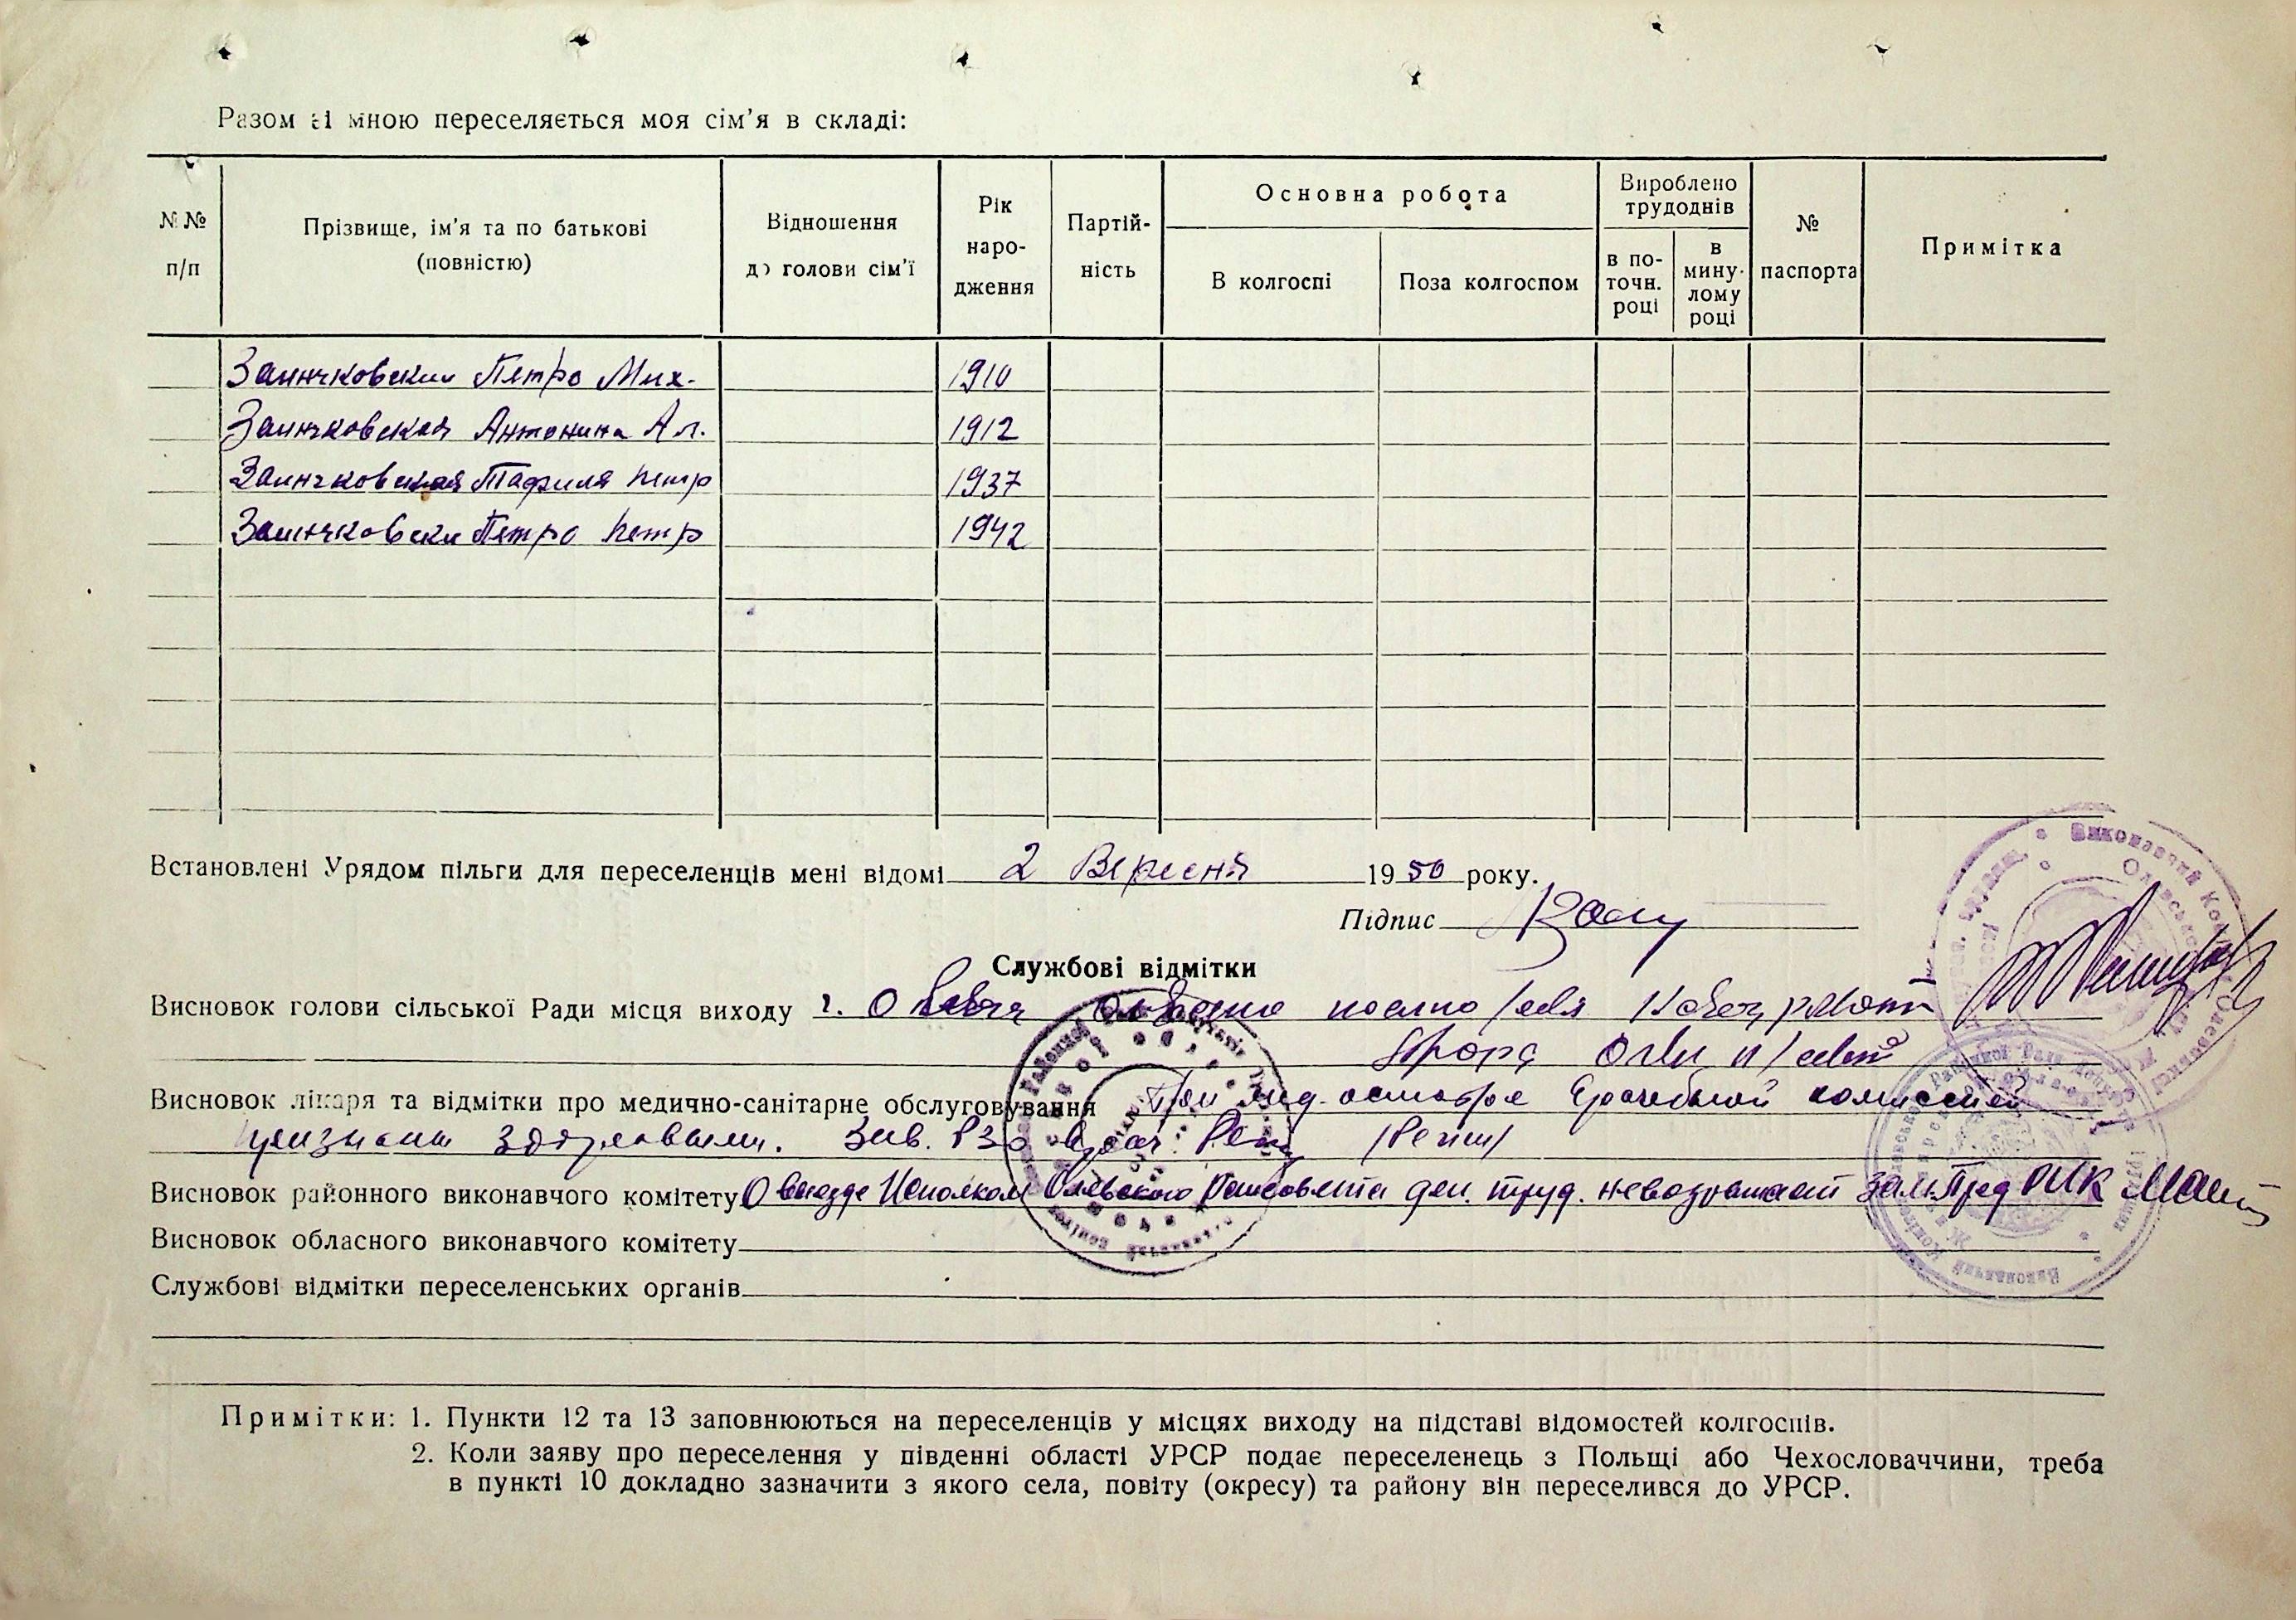 Разом зі мною переселяється моя сім'я в складі:
№№ п/п
Прізвище, ім'я та по батькові (повністю)
Відношення до голови сім'ї
Рік народження
Партійність
Основна робота
В колгоспі
Поза колгоспом
Вироблено трудоднів
в поточн. році
в минулому році
№ паспорта
Примітка
Заинчковский Петро Мих. 1910
Заинчковская Антонина Ал. 1912
Заинчковская Петр 1937
Заинчковски Петро Петр 1942
Встановлені Урядом пільги для переселенців мені відомі 2 Вересня 1950 року.
Підпис
Службові відмітки
Висновок голови сільської Ради місця виходу
Висновок лікаря та відмітки про медично-санітарне обслуговування При мед. осмотре Врачебной комиссией
признаны здоровыми. Зав. РЗО врач
Висновок районного виконавчого комітету О выезде Исполком Олевского Райсовета деп. труд. невозражает Зам. Пред РИК
Висновок обласного виконавчого комітету
Службові відмітки переселенських органів
Примітки: 1. Пункти 12 та 13 заповнюються на переселенців у місцях виходу на підставі відомостей колгоспів.
2. Коли заяву про переселення у південні області УРСР подає переселенець з Польщі або Чехословаччини, треба
в пункті 10 докладно зазначити з якого села, повіту (окресу) та району він переселився до УРСР.